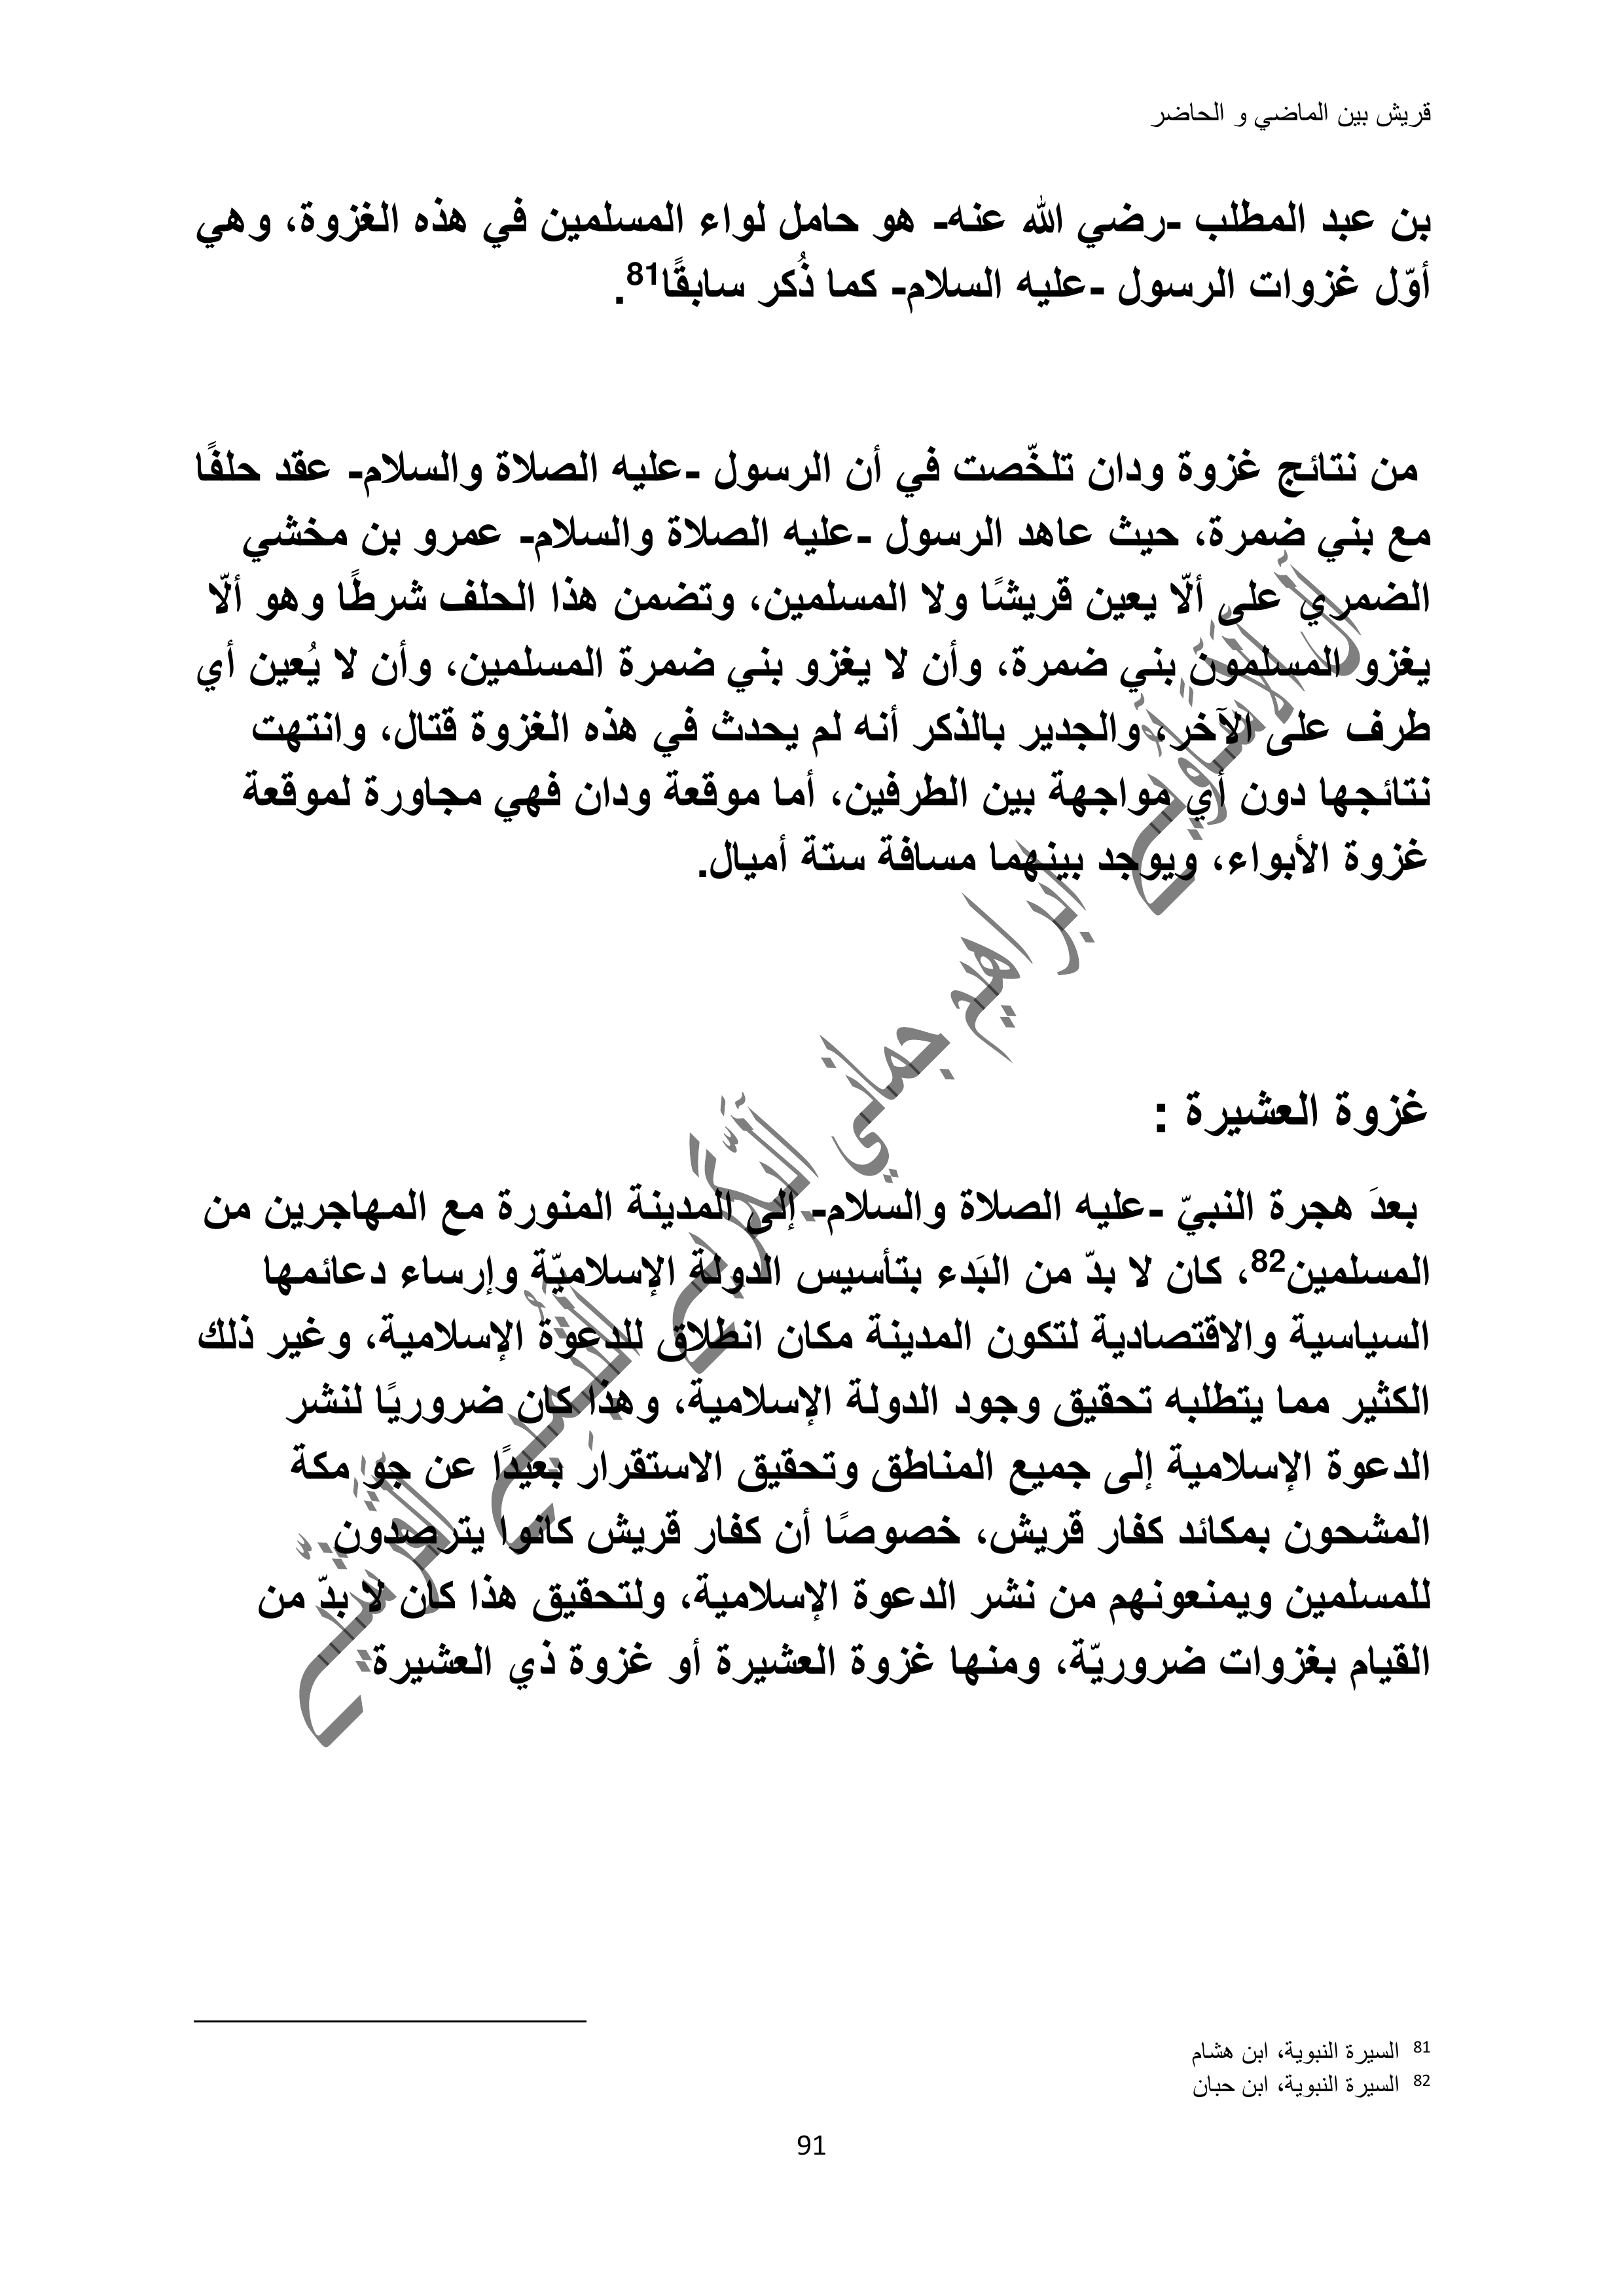 قريش بين الماضي و الحاضر
بن عبد المطلب -رضي الله عنه- هو حامل لواء المسلمين في هذه الغزوة، وهي
أوّل غزوات الرسول -عليه السلام- كما ذُكر سابقًا81.
من نتائج غزوة ودان تلخّصت في أن الرسول -عليه الصلاة والسلام- عقد حلفًا
مع بني ضمرة، حيث عاهد الرسول -عليه الصلاة والسلام- عمرو بن مخشي
الضمري على ألّا يعين قريشًا ولا المسلمين، وتضمن هذا الحلف شرطًا وهو ألّا
يغزو المسلمون بني ضمرة، وأن لا يغزو بني ضمرة المسلمين، وأن لا يُعين أي
طرف على الآخر، والجدير بالذكر أنه لم يحدث في هذه الغزوة قتال، وانتهت
نتائجها دون أي مواجهة بين الطرفين، أما موقعة ودان فهي مجاورة لموقعة
غزوة الأبواء، ويوجد بينهما مسافة ستة أميال.
غزوة العشيرة :
بعدَ هجرة النبيّ -عليه الصلاة والسلام- إلى المدينة المنورة مع المهاجرين من
المسلمين82، كان لا بدّ من البَدء بتأسيس الدولة الإسلاميّة وإرساء دعائمها
السياسية والاقتصادية لتكون المدينة مكان انطلاق للدعوة الإسلامية، وغير ذلك
الكثير مما يتطلبه تحقيق وجود الدولة الإسلامية، وهذا كان ضروريًا لنشر
الدعوة الإسلامية إلى جميع المناطق وتحقيق الاستقرار بعيدًا عن جو مكة
المشحون بمكائد كفار قريش، خصوصًا أن كفار قريش كانوا يترصدون
للمسلمين ويمنعونهم من نشر الدعوة الإسلامية، ولتحقيق هذا كان لا بدّ من
القيام بغزوات ضروريّة، ومنها غزوة العشيرة أو غزوة ذي العشيرة
ابراهيم جماني
81 السيرة النبوية، ابن هشام
82 السيرة النبوية، ابن حبان
91